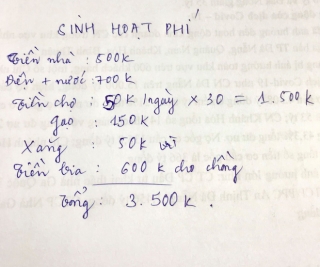 SINH HOẠT PHÍ
Tiền nhà : 500k
Điện + nước : 700k
Tiền chợ : 50k /ngày x 30 = 1.500k
gạo : 150k
Xăng : 50k
Tiền bia : 600k cho chồng
Tổng : 3.500k.